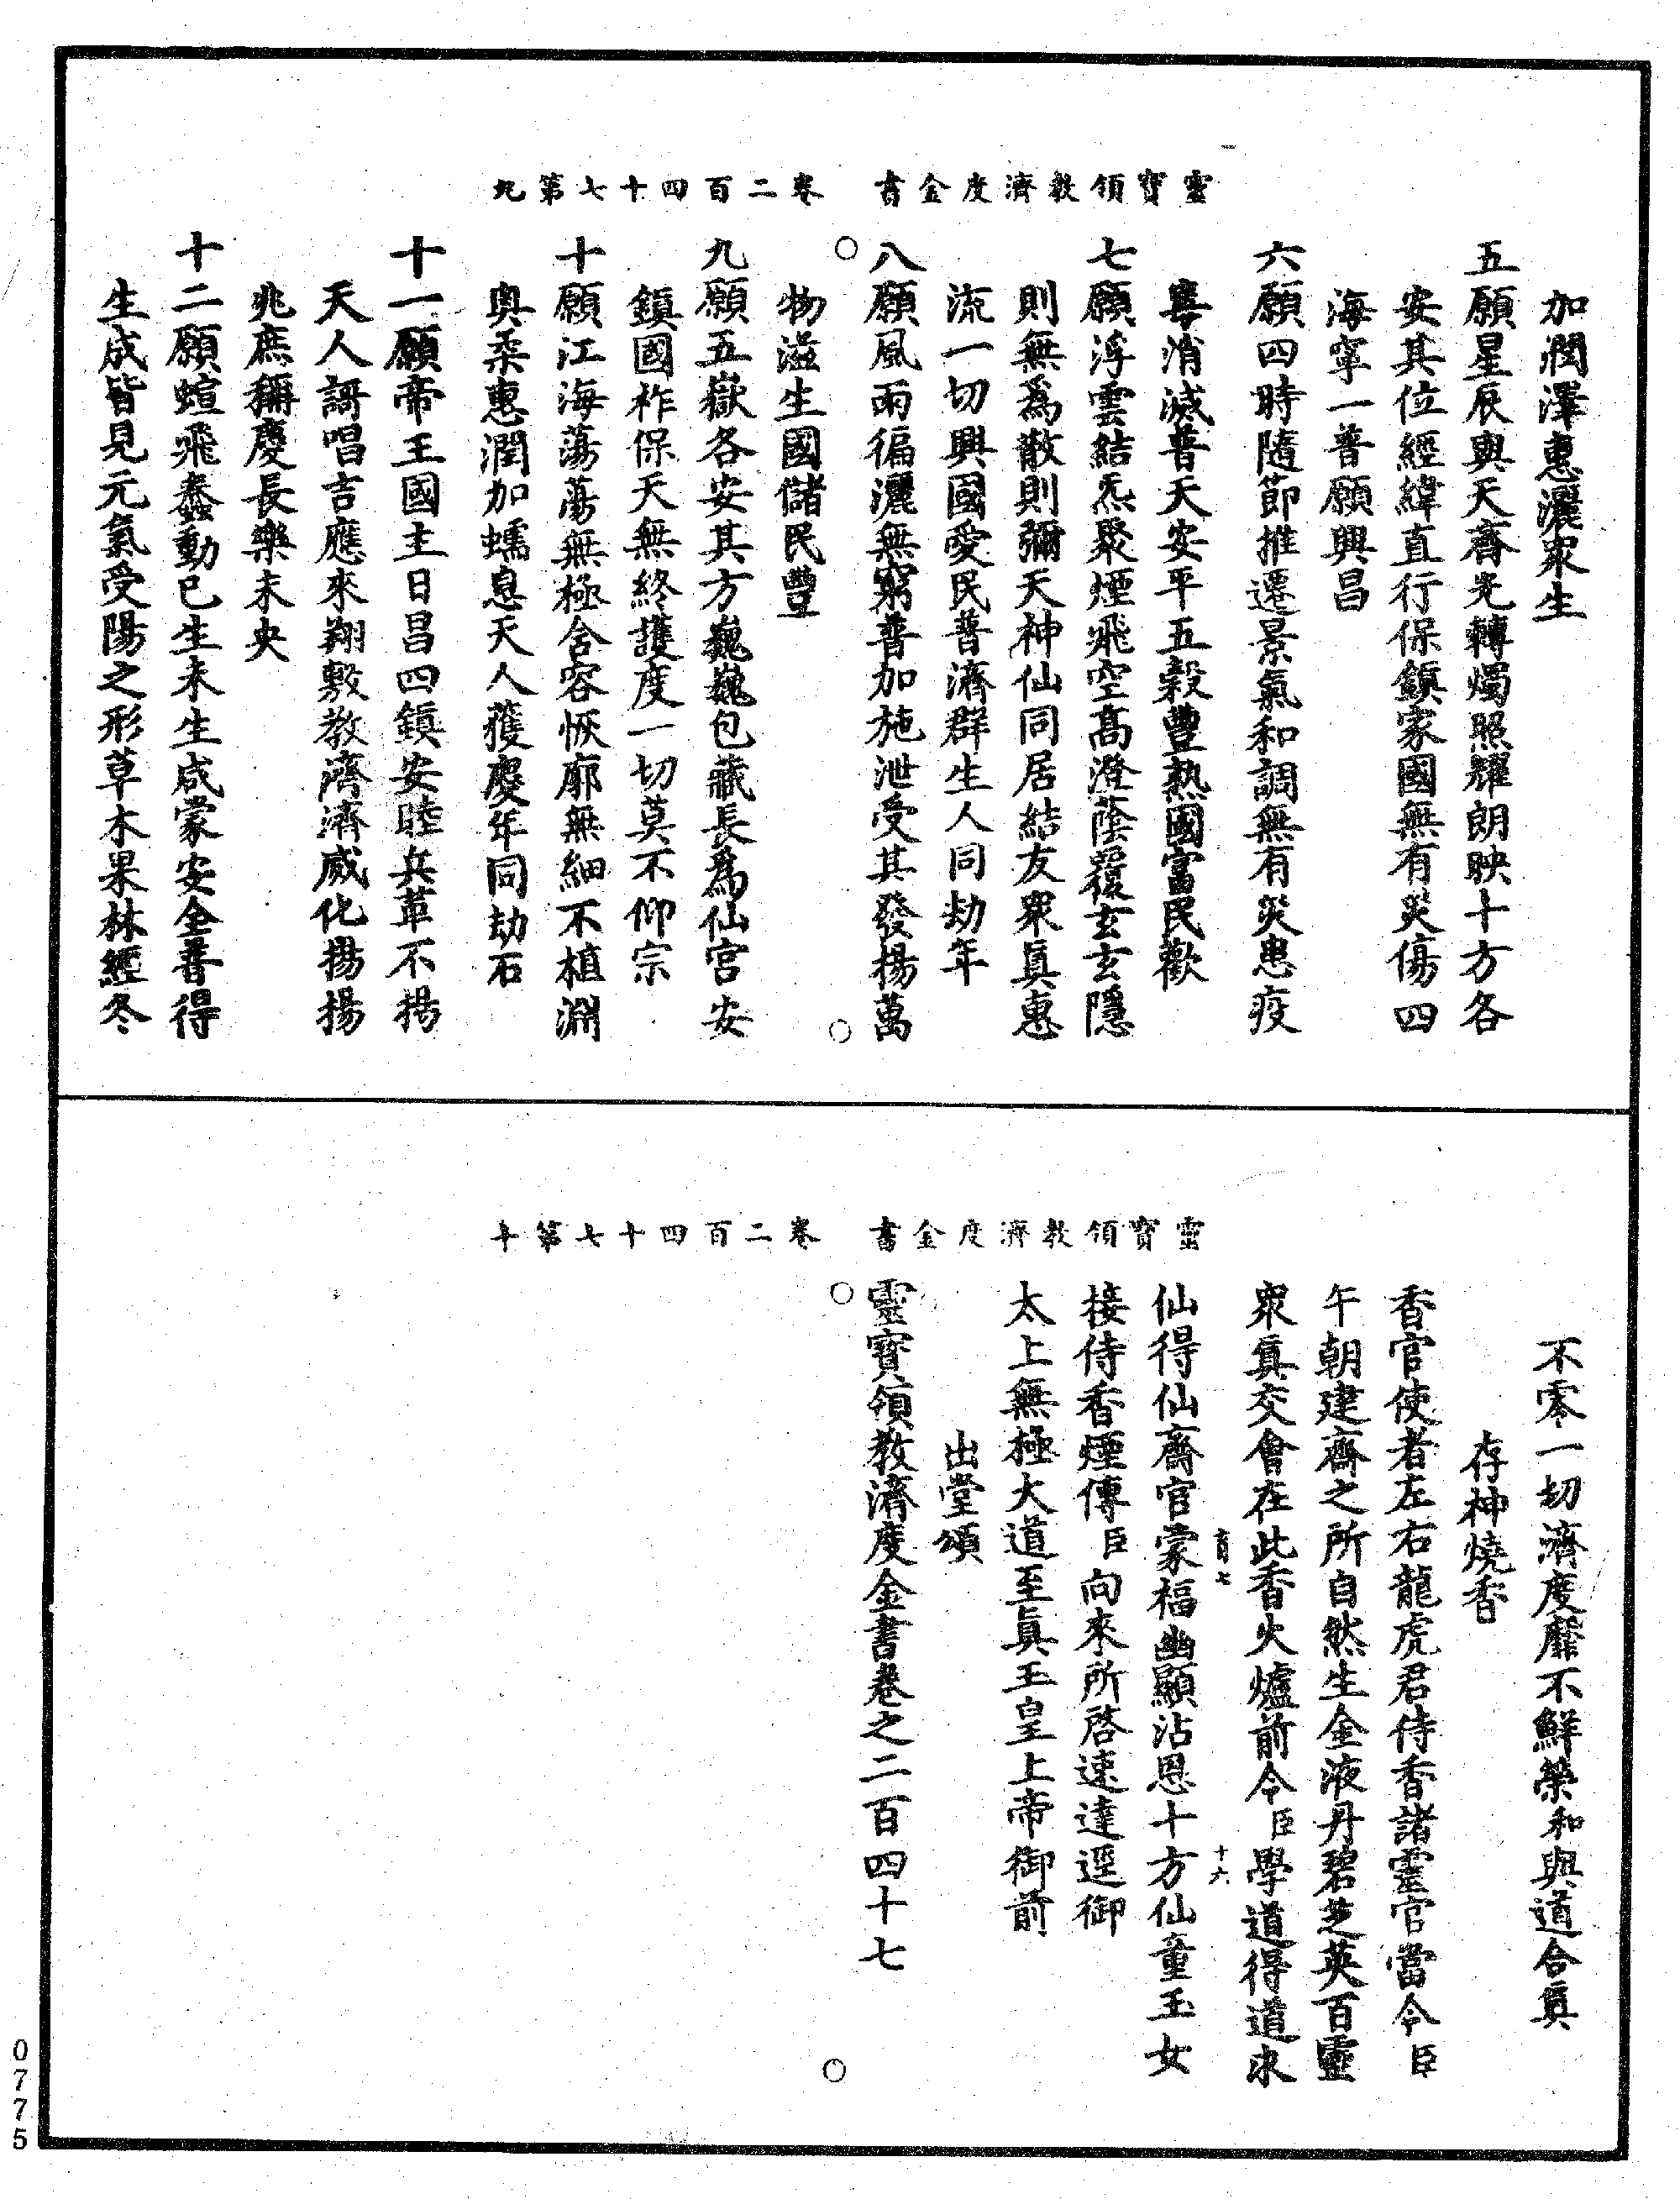 靈寶領教濟度金書 卷二百四十七第九
加潤澤惠灑衆生
五願星辰與天齊光轉燭照耀朗映十方各
安其位經緯直行保鎮家國無有災傷四
海寧一普願興昌
六願四時隨節推遷景氣和調無有災患疫
毒消滅普天安平五穀豐熟國富民歡
七願浮雲結炁聚煙飛空高澄蔭覆玄玄隱
則無爲散則彌天神仙同居結友衆眞惠
流一切興國愛民普濟群生人同劫年
八願風雨徧灑無窮普加施泄受其發揚萬
物滋生國儲民豐
九願五嶽各安其方巍巍包藏長爲仙宮安
鎮國祚保天無終護度一切莫不仰宗
十願江海蕩蕩無極含容恢廓無細不植淵
奥柔惠潤加蠕息天人獲慶年同劫石
十一願帝王國主日昌四鎮安睦兵革不揚
天人謌唱吉應來翔敷教濟濟威化揚揚
兆庶稱慶長樂未央
十二願蝖飛蠢動已生未生咸蒙安全普得
生成皆見元氣受陽之形草木果林經冬
靈寶領教濟度金書 卷二百四十七第十
不零一切濟度靡不鮮榮和與道合眞
存神燒香
香官使者左右龍虎君侍香諸靈官當令臣
午朝建齋之所自然生金液丹碧芝英百靈
衆眞交會在此香火爐前令臣學道得道求
育七 十六
仙得仙齋官蒙福幽顯沾恩十方仙童玉女
接侍香煙傳臣向來所啓速達逕御
太上無極大道至眞玉皇上帝御前
出堂頌
靈寶領教濟度金書卷之二百四十七
0775